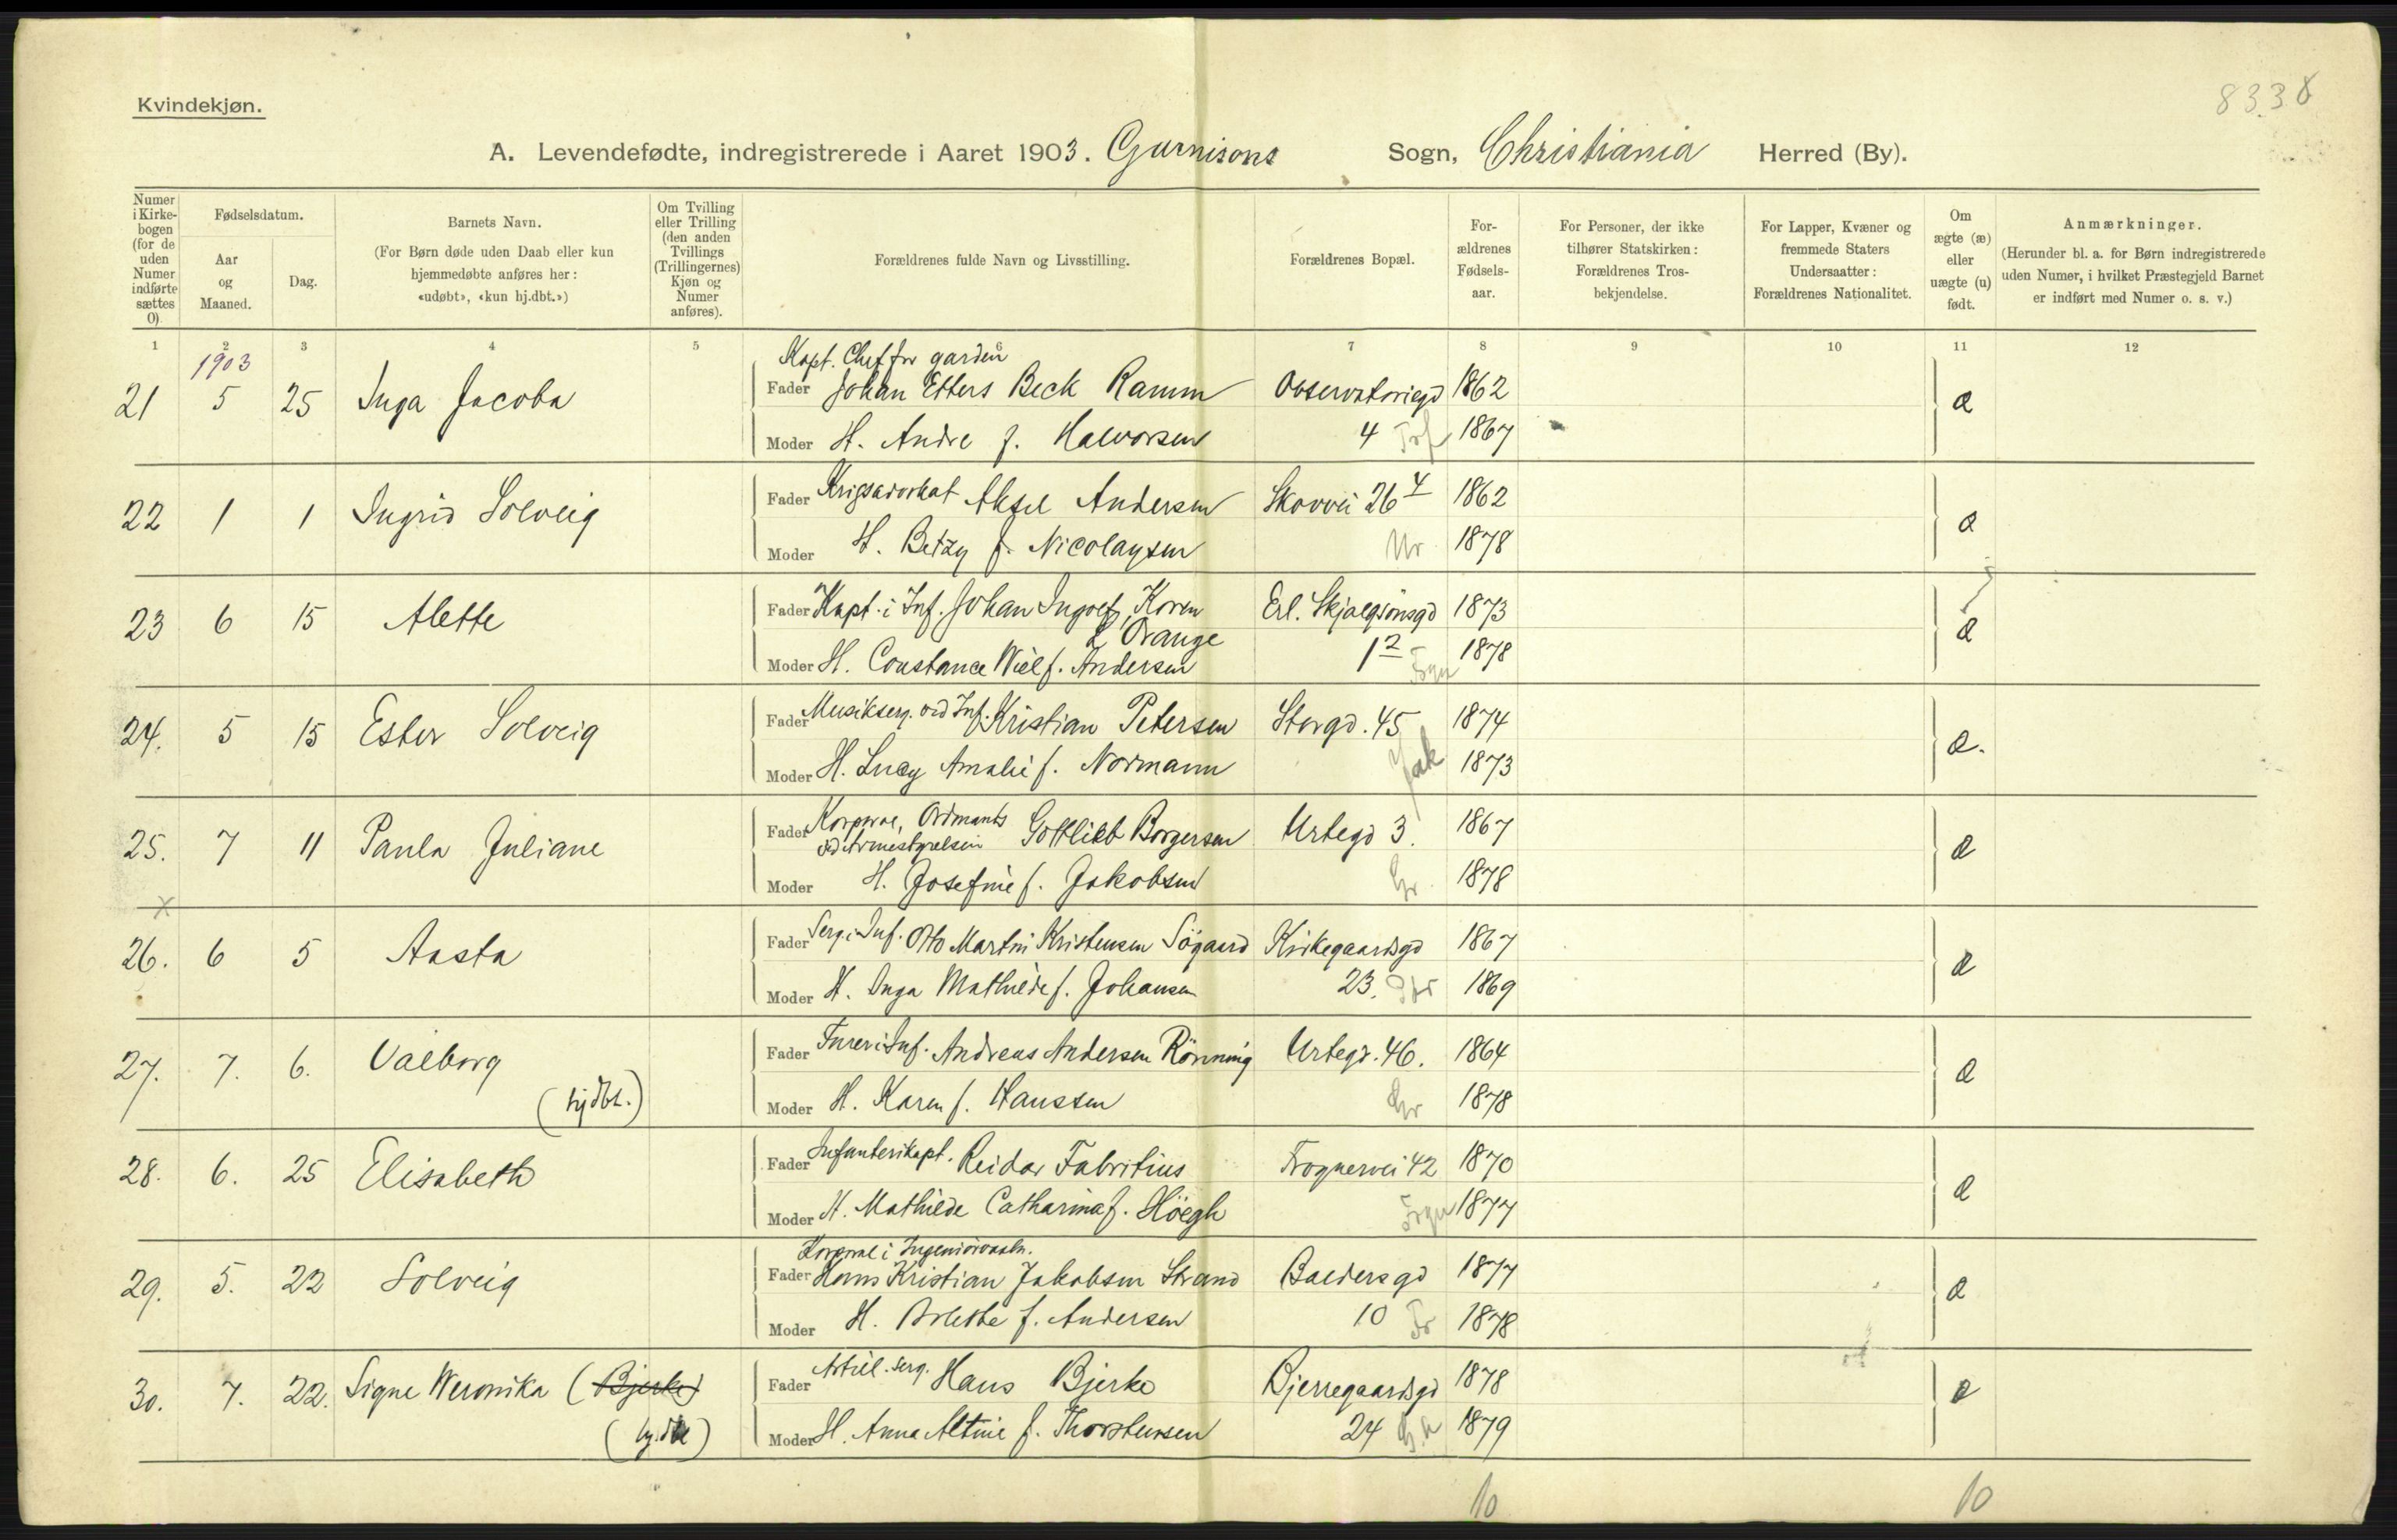 Kvindekjøn.
8338
A. Levendefødte, indregistrerede i Aaret 1903. Garnisons Sogn, Christiania Herred (By).
Numer i Kirkebogen (for de uden Numer indførte sættes 0).
Fødselsdatum.
Aar og Maaned.
Dag.
Barnets Navn.
(For Børn døde uden Daab eller kun hjemmedøbte anføres her: «udøbt», «kun hj.dbt.»)
Om Tvilling eller Trilling (den anden Tvillings (Trillingernes) Kjøn og Numer anføres).
Forældrenes fulde Navn og Livsstilling.
Forældrenes Bopæl.
Forældrenes Fødselsaar.
For Personer, der ikke tilhører Statskirken: Forældrenes Trosbekjendelse.
For Lapper, Kvæner og fremmede Staters Undersaatter: Forældrenes Nationalitet.
Om ægte (æ) eller uægte (u) født.
Anmærkninger.
(Herunder bl. a. for Børn indregistrerede uden Numer, i hvilket Præstegjeld Barnet er indført med Numer o. s. v.)
1 2 3 4 5 6 7 8 9 10 11 12
1903
Kapt. Chef for garden
21 5 25 Inga Jacoba Fader Johan Ebbers Beck Ramm Observatoriegd 1862 æ
Moder H. Andre f. Halvorsen 4 1867
22 1 1 Ingrid Solveig Fader Krigsadvokat Aksel Andersen Skovvei 26 4 1862 æ
Moder H. Betzy f. Nicolaysen Ur 1878
23 6 15 Alette Fader Kapt. i Inf. Johan Ingolf Koren Erl. Skjalgsönsgd 1873 æ
L'Orange
Moder H. Constance Wiel f. Andersen 1 2 Frgn 1878
24. 5 15 Ester Solveig Fader Musikserg. ved Inf. Kristian Petersen Storgd. 45 1874 æ.
Moder H. Lucy Amalie f. Normann Jak 1873
25. 7 11 Paula Juliane Fader Korporal, Ordonants ved Armestyrelsen Gottlieb Borgersen Urtegd 3. 1867 æ
Moder H. Josefine f. Jakobsen Gr. 1878
x
26. 6 5 Aasta Fader Serg. i Inf. Otto Martin Kristensen Sögaard Kirkegaardsgd 1867 æ
Moder H. Inga Mathilde f. Johansen 23. 1869
27. 7. 6. Valborg Fader Furer i Inf. Andreas Andersen Rönning Urtegd. 46. 1864 æ
(hjdbt.) Moder H. Karen f. Hanssen Gr 1878
28. 6. 25 Elisabeth Fader Infanterikapt. Reidar Fabritius Frognervei 42 1870 æ
Moder H. Mathilde Catharina f. Höegh Frgn 1877
Korporal i Ingeniörvaabn.
29. 5. 22 Solveig Fader Hans Kristian Jakobsen Strand Baldersgd 1877 æ
Moder H. Bolette f. Andersen 10 Fr 1878
30. 7. 22. Signe Weronika (Bjerke) Fader Artil. Serg. Hans Bjerke Bjerregaardsgd 1878 æ
(hj.dbt) Moder H. Anna Altine f. Thorstensen 24 G.A 1879
10 10